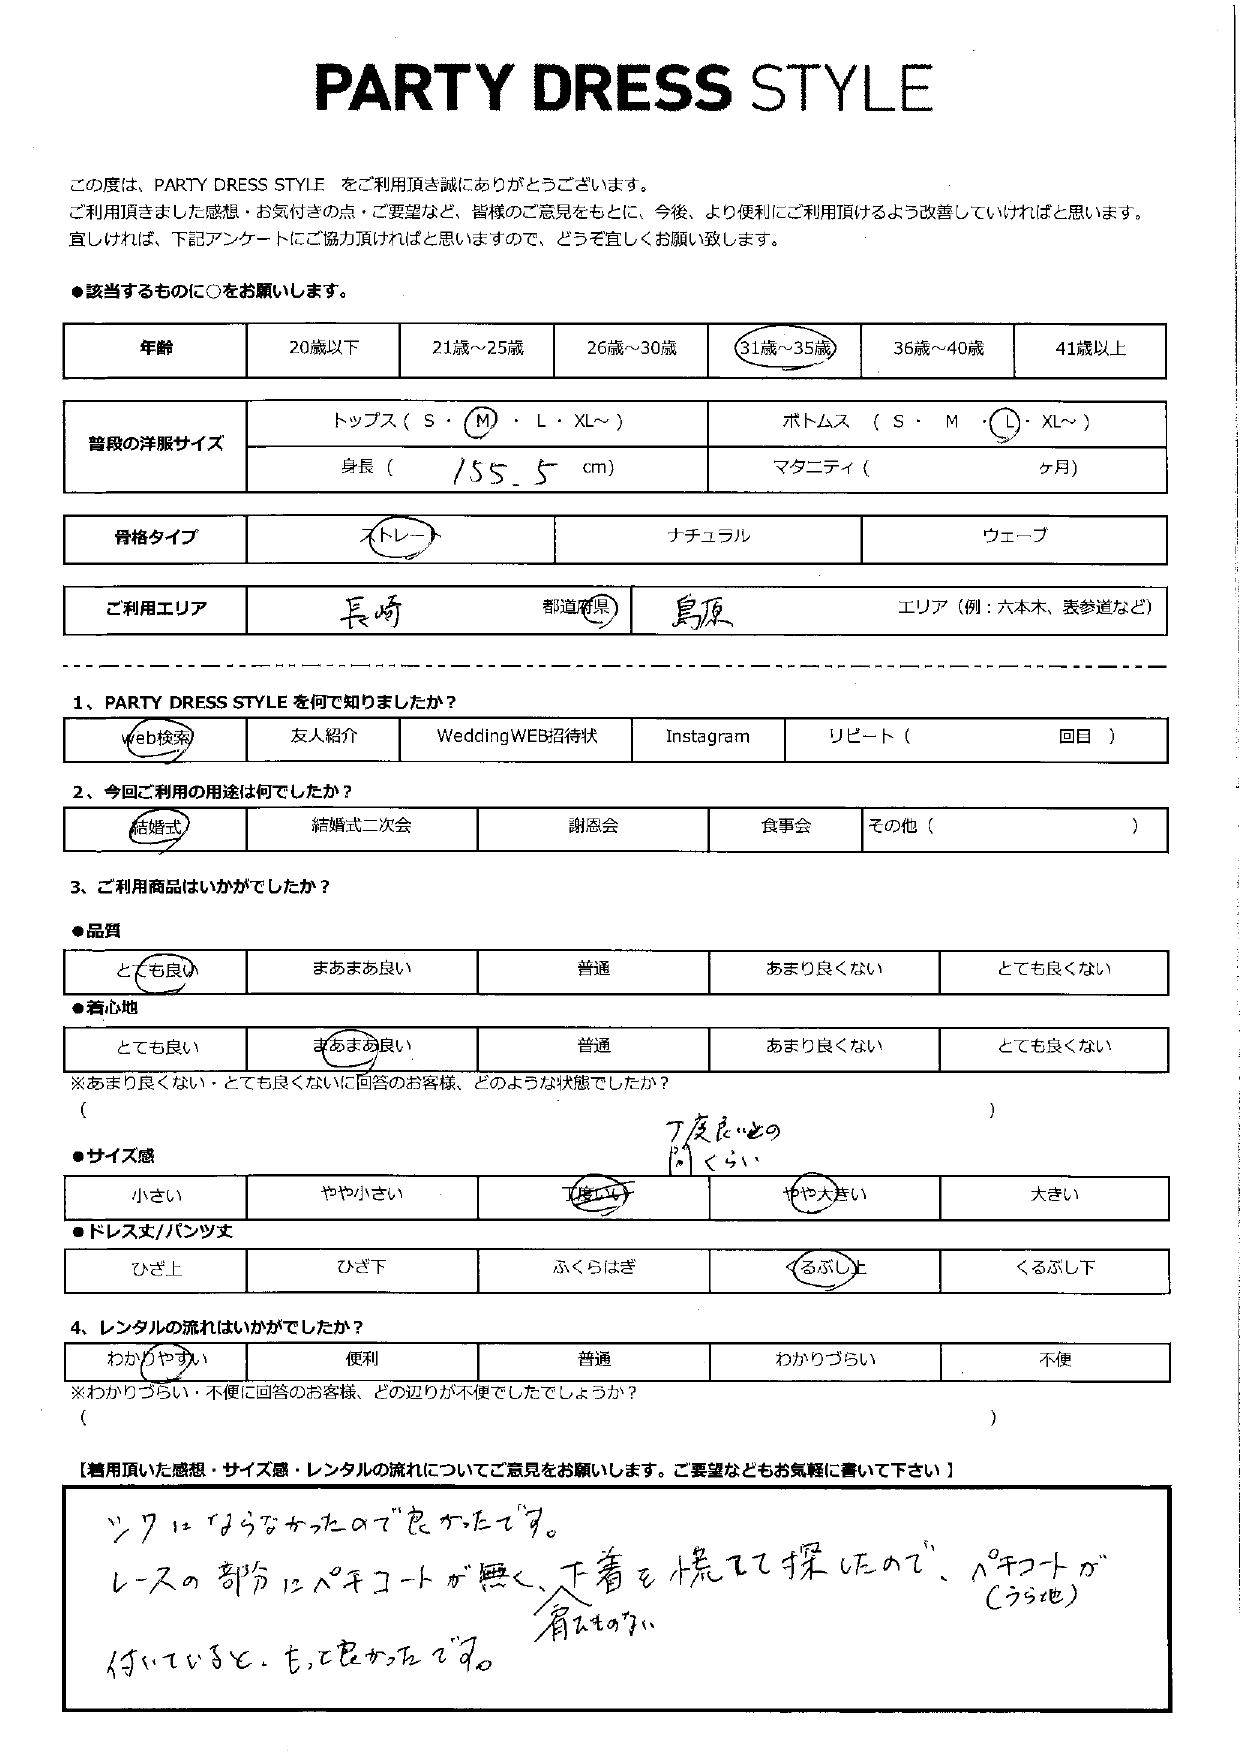 PARTY DRESS STYLE
この度は、PARTY DRESS STYLE をご利用頂き誠にありがとうございます。
ご利用頂きました感想・お気付きの点・ご要望など、皆様のご意見をもとに、今後、より便利にご利用頂けるよう改善していければと思います。
宜しければ、下記アンケートにご協力頂ければと思いますので、どうぞ宜しくお願い致します。
●該当するものに○をお願いします。
年齢 20歳以下 21歳～25歳 26歳～30歳 31歳～35歳 36歳～40歳 41歳以上
普段の洋服サイズ トップス ( S ・ M ・ L ・ XL～ ) ボトムス ( S ・ M ・ L ・ XL～ )
身長 ( 155.5 cm) マタニティ ( ヶ月)
骨格タイプ ストレート ナチュラル ウェーブ
ご利用エリア 長崎 都道府県 島原 エリア（例：六本木、表参道など）
1、PARTY DRESS STYLE を何で知りましたか？
web検索 友人紹介 WeddingWEB招待状 Instagram リピート ( 回目 )
2、今回ご利用の用途は何でしたか？
結婚式 結婚式二次会 謝恩会 食事会 その他 ( )
3、ご利用商品はいかがでしたか？
●品質
とても良い まあまあ良い 普通 あまり良くない とても良くない
●着心地
とても良い まあまあ良い 普通 あまり良くない とても良くない
※あまり良くない・とても良くないに回答のお客様、どのような状態でしたか？
( )
丁度良いとの
間くらい
●サイズ感
小さい やや小さい 丁度いい やや大きい 大きい
●ドレス丈/パンツ丈
ひざ上 ひざ下 ふくらはぎ くるぶし上 くるぶし下
4、レンタルの流れはいかがでしたか？
わかりやすい 便利 普通 わかりづらい 不便
※わかりづらい・不便に回答のお客様、どの辺りが不便でしたでしょうか？
( )
【着用頂いた感想・サイズ感・レンタルの流れについてご意見をお願いします。ご要望などもお気軽に書いて下さい】
シワにならなかったので良かったです。
レースの部分にペチコートが無く、下着を慌てて探したので、ペチコートが
(うら地)
肩ひものない
付いていると、もっと良かったです。